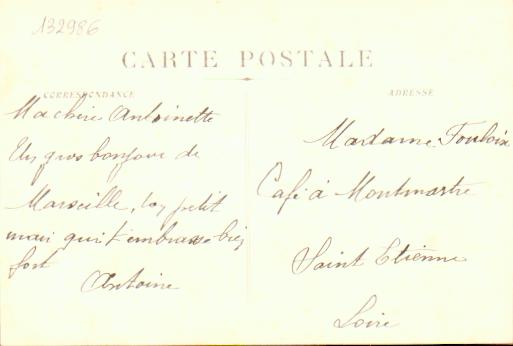 132986
CARTE POSTALE
CORRESPONDANCE
Ma chère Antoinette
Un gros bonjour de
Marseille, ton petit
mari qui t'embrasse bien
fort
Antoine
ADRESSE
Madame
Café à Montmartre
Saint Etienne
Loire